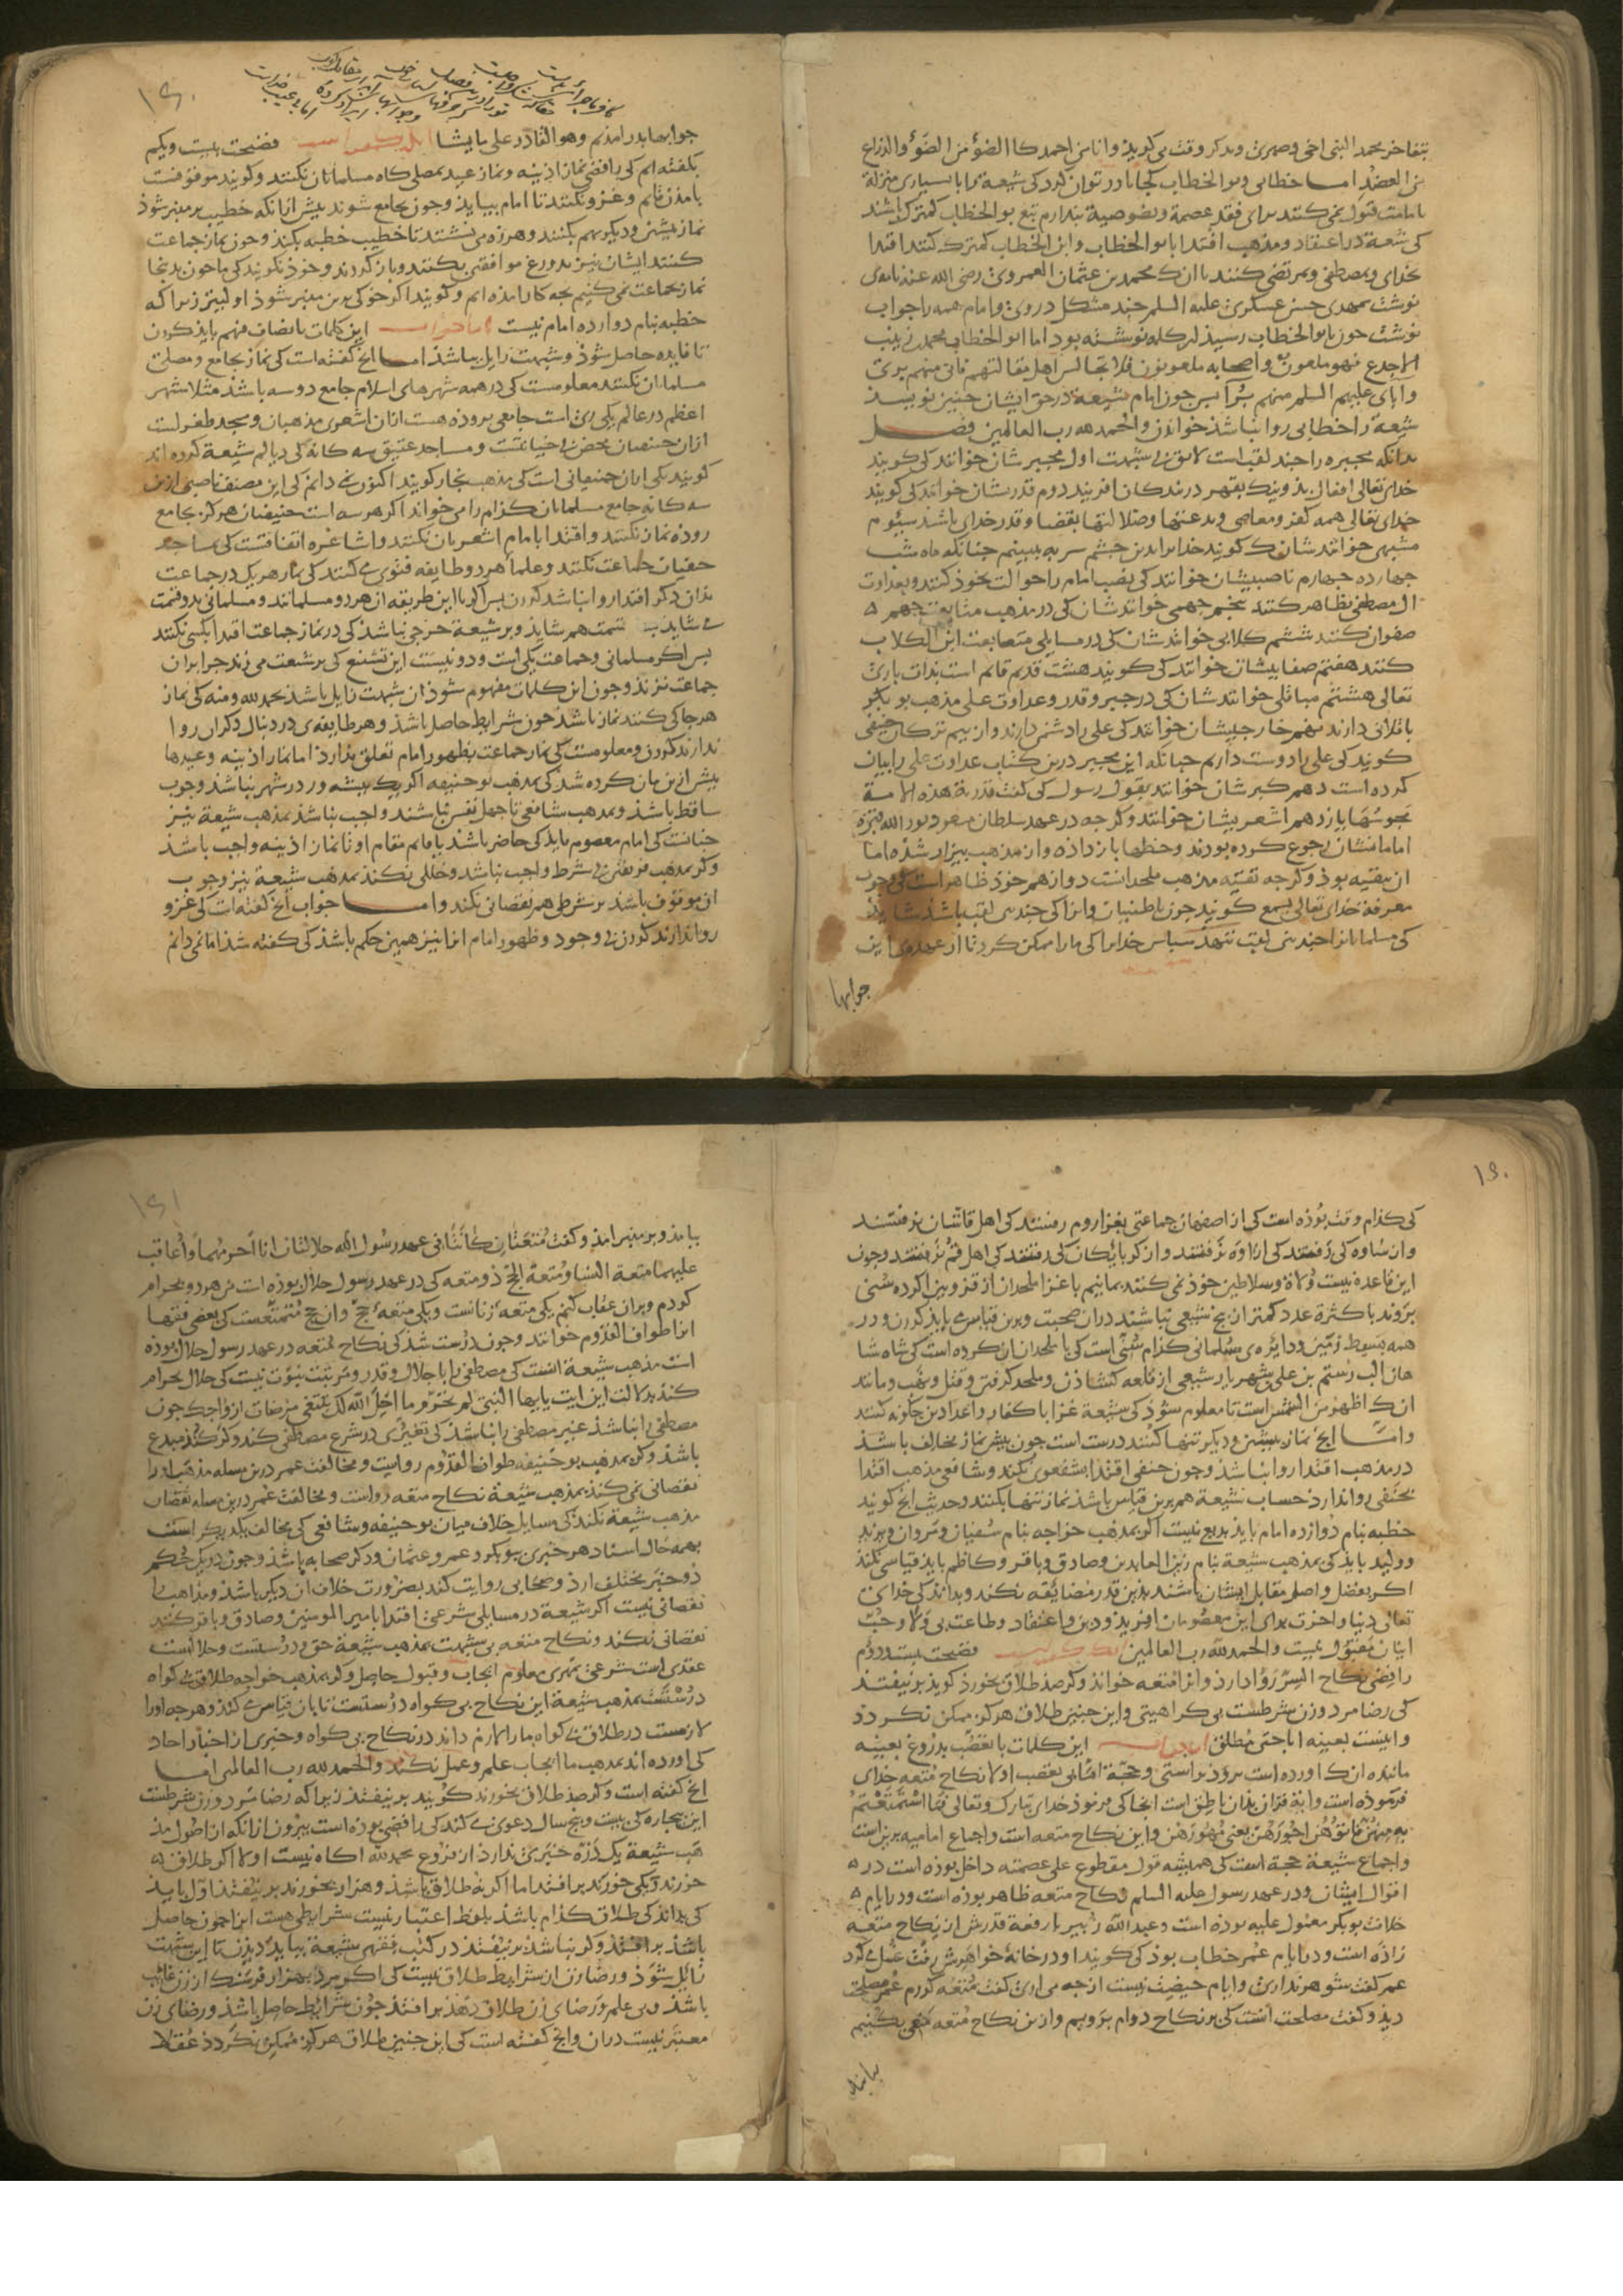 بتفاخر محمد النبی اخی وصهری ومذکر وقت می کوید وانا من احمد کالضوٴ من الضوٴ والذراع
من العضد اما خطابی وبو الخطاب کجا باور توان کرد کی شیعة که با بسیاری منزلة
بامامت قبول نمی کنند برای فقد عصمة ونصوصیة بندارم تبع بو الخطاب کمترک باشند
کی شیعة در اعتقاد ومذهب اقتدا بابو الخطاب وابن الخطاب کمترک کنند اقتدا
بخدای وبمصطفی وبمرتضی کنند با آنک محمد بن عثمان العمروی رضی الله عنه نامه‌ی
نوشت بمهدی حسن عسکری علیه السلم جند مشکل دروی وامام همه را جواب
نوشت جون بابو الخطاب رسید این کلمه نوشته بود اما ابو الخطاب محمد بن زینب
الاجدع فهو ملعون واصحابه ملعونون فلا تجالس اهل مقالتهم فانی منهم بری
وابای علیهم السلم منهم برٴا بس جون امام شیعة در حق ایشان جنین نویسد
شیعة را خطابی روا نباشد خواندن والحمد لله رب العالمین فصل
بدانکه مجبره را جند لقب است لایق بی شبهت اول مجبرشان خوانند کی کویند
خدای تعالی افعال بد ونیک بقهر در بندکان افریند دوم قدریشان خوانند کی کویند
خدای تعالی همه کفر ومعاصی وبدعتها وضلالتها بقضا وقدر خدای باشد سیوم
مشبهی خوانندشان ک کویند خدایرا بدین جشم سر به بینیم جنانکه ماه شب
جهارده جهارم ناصبیشان خوانند کی نصب امام را حوالت بخود کنند وبعداوت
آل مصطفی تظاهر کنند بنجم جهمی خوانندشان کی در مذهب متابعت جهم
صفوان کنند ششم کلابی خوانندشان کی در مسایلی متابعت ابن الکلاب
کنند هفتم صفاییشان خوانند کی کویند هشت قدیم قایم است بذات باری
تعالی هشتم خوانندشان کی در جبر وقدر وعداوت علی مذهب بو بکر
باقلانی دارند نهم خارجیشان خوانند کی علی را دشمن دارند واز بیم ترکان حنفی
کویند کی علی را دوست داریم جنانکه این مجبر درین کتاب عداوت علی را بیان
کرده است دهم کبرشان خوانند بقول رسول کی کفت قدریة هذه الامة
مجوسها یازدهم اشعریشان خوانند وکرجه در عهد سلطان مسعود نور الله قبره
امامانشان رجوع کرده بودند وخطها باز داده وازین مذهب بیزار شده اما
آن بتقیه بود وکرجه تقیه مذهب ملحدانست دوازدهم خود ظاهر است کی وجوب
معرفة خدای تعالی بسمع کویند جون باطنیان وآنرا کی جندین لقب باشد شاید
کی مسلمانانرا جندین لقب ننهد سباس خدایرا کی ما را ممکن کرد تا از عهده‌ی این
جوابها
جوابها بدر امدیم وهو القادر علی ما یشا انکه کفته است فضیحت بیست ویکم
بکفته ایم کی رافضی نماز اذینه ونماز عید بمصلی کاه مسلمانان نکنند وکویند موقوفست
بامدن قائم وغزو نکنند تا امام بیاید وجون بجامع شوند بیش از آنکه خطیب بر منبر شود
نماز بیشین ودیکر بهم بکنند وهرزه می نشینند تا خطیب خطبه بکند وجون نماز جماعت
کنند ایشان نیز بدروغ موافقتی بکنند وباز کردند وخود نکویند کی ما جون بدینجا
نماز بجماعت نمی کنیم بجه کار امده ایم وکویند اکر خوکی برین منبر شود اولیتر زیرا که
خطبه بنام دوازده امام نیست اما جواب این کلمات بانصاف فهم باید کردن
تا فایده حاصل شود وشبهت زایل باشد اما انج کفته است کی نماز بجامع ومصلی
مسلمانان نکنند معلومست کی در همه شهرهای اسلام جامع دو سه باشد مثلا شهر
اعظم در عالم یکی ری است جامعی بروده هست از آن اشعری مذهبان ومسجد طغرلست
از آن حنفیان محض بی خیانت ومساجد عتیق سه کانه کی دیالم شیعة کرده اند
کویند یکی ازان حنفیانی است کی مذهب نجار کویند اکنون نمی دانم کی این مصنف ناصبی ازین
سه کانه جامع مسلمانان کدام را می خواند اکر هر سه است حنفیان هرکز بجامع
روده نماز نکنند واقتدا بامام اشعریان نکنند واشاعره اتفاقست کی بمساجد
حنفیان جماعت نکنند وعلماٴ هر دو طایفه فتوی می کنند کی بنماز هر یک در جماعت
بدان دکر اقتدا روا نباشد کردن بس اکر با این طریقه آن هر دو مسلمانند ومسلمانی بدو قسمت
می شاید به تهمت هم شاید وبر شیعة حرجی نباشد کی در نماز جماعت اقتدا بکسی نکنند
بس اکر مسلمانی وجماعت یکی است ودو نیست این تشنیع کی بر شیعت می زند جرا بران
جماعت نزند وجون این کلمات مفهوم شود آن شبهت زایل باشد بحمد لله ومنه کی نماز
هر جا کی کنند نماز باشد جون شرایط حاصل باشد وهر طایفه‌ی در دنبال دکران روا
ندارند کردن ومعلومست کی نماز جماعت بظهور امام تعلق ندارد اما نماز اذینه وعیدها
بیش ازین بیان کرده شد کی بمذهب بو حنیفه اکر یک بیشه ور در شهر نباشد وجوب
ساقط باشد وبمذهب شافعی تا جهل نفر نباشند واجب نباشد بمذهب شیعة نیز
جنانست کی امام معصوم باید کی حاضر باشد یا قایم مقام او تا نماز اذینه واجب باشد
وکر بمذهب فریقین بی شرط واجب نباشد وخللی نکند بمذهب شیعة نیز وجوب
آن موقوف باشد بر شرطی هم نقصانی نکند واما جواب آنج کفته است کی غزو
روا ندارند کردن بی وجود وظهور امام آنرا نیز همین حکم باشد کی کفته شد اما نمی دانم
کی کدام وقت بوده است کی از اصفهان جماعتی بغزا روم رفتند کی اهل قاشان نرفتند
واز ساوه کی رفتند کی از اوه نرفتند واز کربایکان کی رفتند کی اهل قم نرفتند وجون
این قاعده نیست ولاة وسلاطین خود نمی کنند بماندیم با غزا ملحدان از قزوین اکر ده سنی
بروند با کثرة عدد کمتر از بنج شیعی نباشند دران صحبت وبرین قیاس می باید کردن ودر
همه بسیط زمین ودایره‌ی مسلمانی کدام سنی است کی با ملحدان آن کرده است کی شاه شا
هان الب رستم بن علی شهریار شیعی از قلعه کشادن وملحد کرفتن وقتل ونهب ومانند
انک اظهر من الشمس است تا معلوم شود کی شیعة غزا با کفار واعداد دین جکونه کنند
واما انج نماز بیشین ودیکر تنها کنند درست است جون بیش نماز مخالف باشد
در مذهب اقتدا روا نباشد وجون حنفی اقتدا بشفعوی نکند وشافعی مذهب اقتدا
بحنفی روا ندارد حساب شیعة هم برین قیاس باشد نماز تنها بکنند وحدیث انج کویند
خطبه بنام دوازده امام باید بدیع نیست اکر بمذهب خواجه بنام سفیان ومروان ویزید
وولید باید کی بمذهب شیعة بنام زین العابدین وصادق وباقر وکاظم باید قیاسی نکند
اکر بفضل واصل مقابل ایشان باشند بدین قدر مضایقه نکند وبداند کی خدای
تعالی دنیا واخرت برای این معصومان افرید ودین واعتقاد وطاعت بی ولا وحب
ایشان مقبول نیست والحمد لله رب العالمین انکه کفته است فضیحت بیست ودوم
رافضی نکاح السر روا دارد وانرا متعه خواند وکر صد طلاق بخورد کوید بر نیفتد
کی رضا مرد وزن شرطست بی کراهیتی واین جنین طلاق هرکز ممکن نکردد
واینست بعینه اباحتی مطلق اما جواب این کلمات با تعصب بدروغ بعینه
مانند آن اورده است بروز براستی وحجة انسانی بتعصب اولا نکاح متعه خدای
فرموده است وآیة قران بدان ناطق است آنجا کی فرمود خدای تبارک وتعالی فما استمتعتم
به منهن فآتوهن اجورهن یعنی مهورهن واین نکاح متعه است واجماع امامیه برین است
واجماع شیعة حجة است کی همیشه قول مقطوع علی عصمته داخل بوده است در
اقوال ایشان ودر عهد رسول علیه السلم نکاح متعه ظاهر بوده است ودر ایام
خلافت بو بکر معمول علیه بوده است وعبد الله زبیر با رفعة قدرش از نکاح متعه
زاده است ودر ایام عمر خطاب بود کی کویند او در خانه خواهرش رفت غسل می کرد
عمر کفت شوهر نداری وایام حیضت نیست از جه می اری کفت متعه کردم عمر مصلحت
دید وکفت مصلحت آنست کی بر نکاح دوام برویم وازین نکاح متعه منعی بکنیم
بیامد وبر منبر امد وکفت متعتان کانتا فی عهد رسول الله حلالتان انا احرمهما واعاقب
علیهما متعة النسا ومتعة الحج دو متعه کی در عهد رسول حلال بوده است من هر دو بحرام
کردم وبران عقاب کنم یکی متعه زنانست ویکی متعه حج وآن حج متمتعست کی بعضی فقها
انرا طواف القدوم خوانند وجون درست شد کی نکاح متعه در عهد رسول حلال بوده
است مذهب شیعة آنست کی مصطفی را با جلال وقدر ومرتبت نبوت نیست کی حلال بحرام
کند بدلالت این ایت یا ایها النبی لم تحرم ما احل الله لک تبتغی مرضات ازواجک جون
مصطفی را نباشد غیر مصطفی را نباشد کی تغییری در شرع مصطفی کند وکر کند مبدع
باشد وکر بمذهب بو حنیفه طواف القدوم رواست ومخالفت عمر درین مساله مذهب اورا
نقصانی نمی کند بمذهب شیعة نکاح متعه رواست ومخالفت عمر درین مساله نقصان
مذهب شیعة نکند کی مسایل خلاف میان بو حنیفه وشافعی کی مخالف یکدیکر است
بهمه حال اسناد هر خبری ببو بکر وعمر وعثمان ودکر صحابه باشد وجون در یک حکم
دو خبر مختلف ارد وصحابی روایت کند بضرورت خلاف آن دیکر باشد ومذاهب را
نقصانی نیست اکر شیعة در مسایلی شرعی اقتدا بامیر المومنین وصادق وباقر کنند
نقصانی نکند ونکاح متعه بی شبهت بمذهب شیعة حق ودرستست وحلالست
عقدی است شرعی بمهری معلوم ایجاب وقبول حاصل وکر بمذهب خواجه طلاق بی کواه
درستست بمذهب شیعة این نکاح بی کواه درستست تا بان قیاس می کند وهرجه اورا
لازمست در طلاق بی کواه ما را لازم داند در نکاح بی کواه وخبری از اخبار احاد
کی اورده اند بمذهب ما ایجاب علم وعمل نکند والحمد لله رب العالمین اما
انج کفته است وکر صد طلاق بخورند کویند بر نیفتد زیرا که رضا مرد وزن شرطست
این بیجاره کی بیست وبنج سال دعوی می کند کی رافضی بوده است بیرون ازانکه از اصول مذ
هب شیعة یک ذره خبری ندارد از فروع بحمد لله اکاه نیست اولا اکر طلاق
خورند ویکی خورند بر افتد اما اکر نه طلاق باشد وهزار بخورند بر نیفتد اول باید
کی بداند کی طلاق کدام باشد بلفظ اعتبار نیست شرایطی هست انرا جون حاصل
باشد بر افتد وکر نباشد بر نیفتد در کتب فقهی شیعة بباید دیدن تا این شبهت
زایل شود ورضا زن از شرایط طلاق نیست کی اکر مرد بهزار فرسنک از زن غایب
باشد وبی علم ورضای زن طلاق دهد بر افتد جون شرایط حاصل باشد ورضای زن
معتبر نیست دران وانج کفته است کی این جنین طلاق هرکز ممکن نکردد عقلا